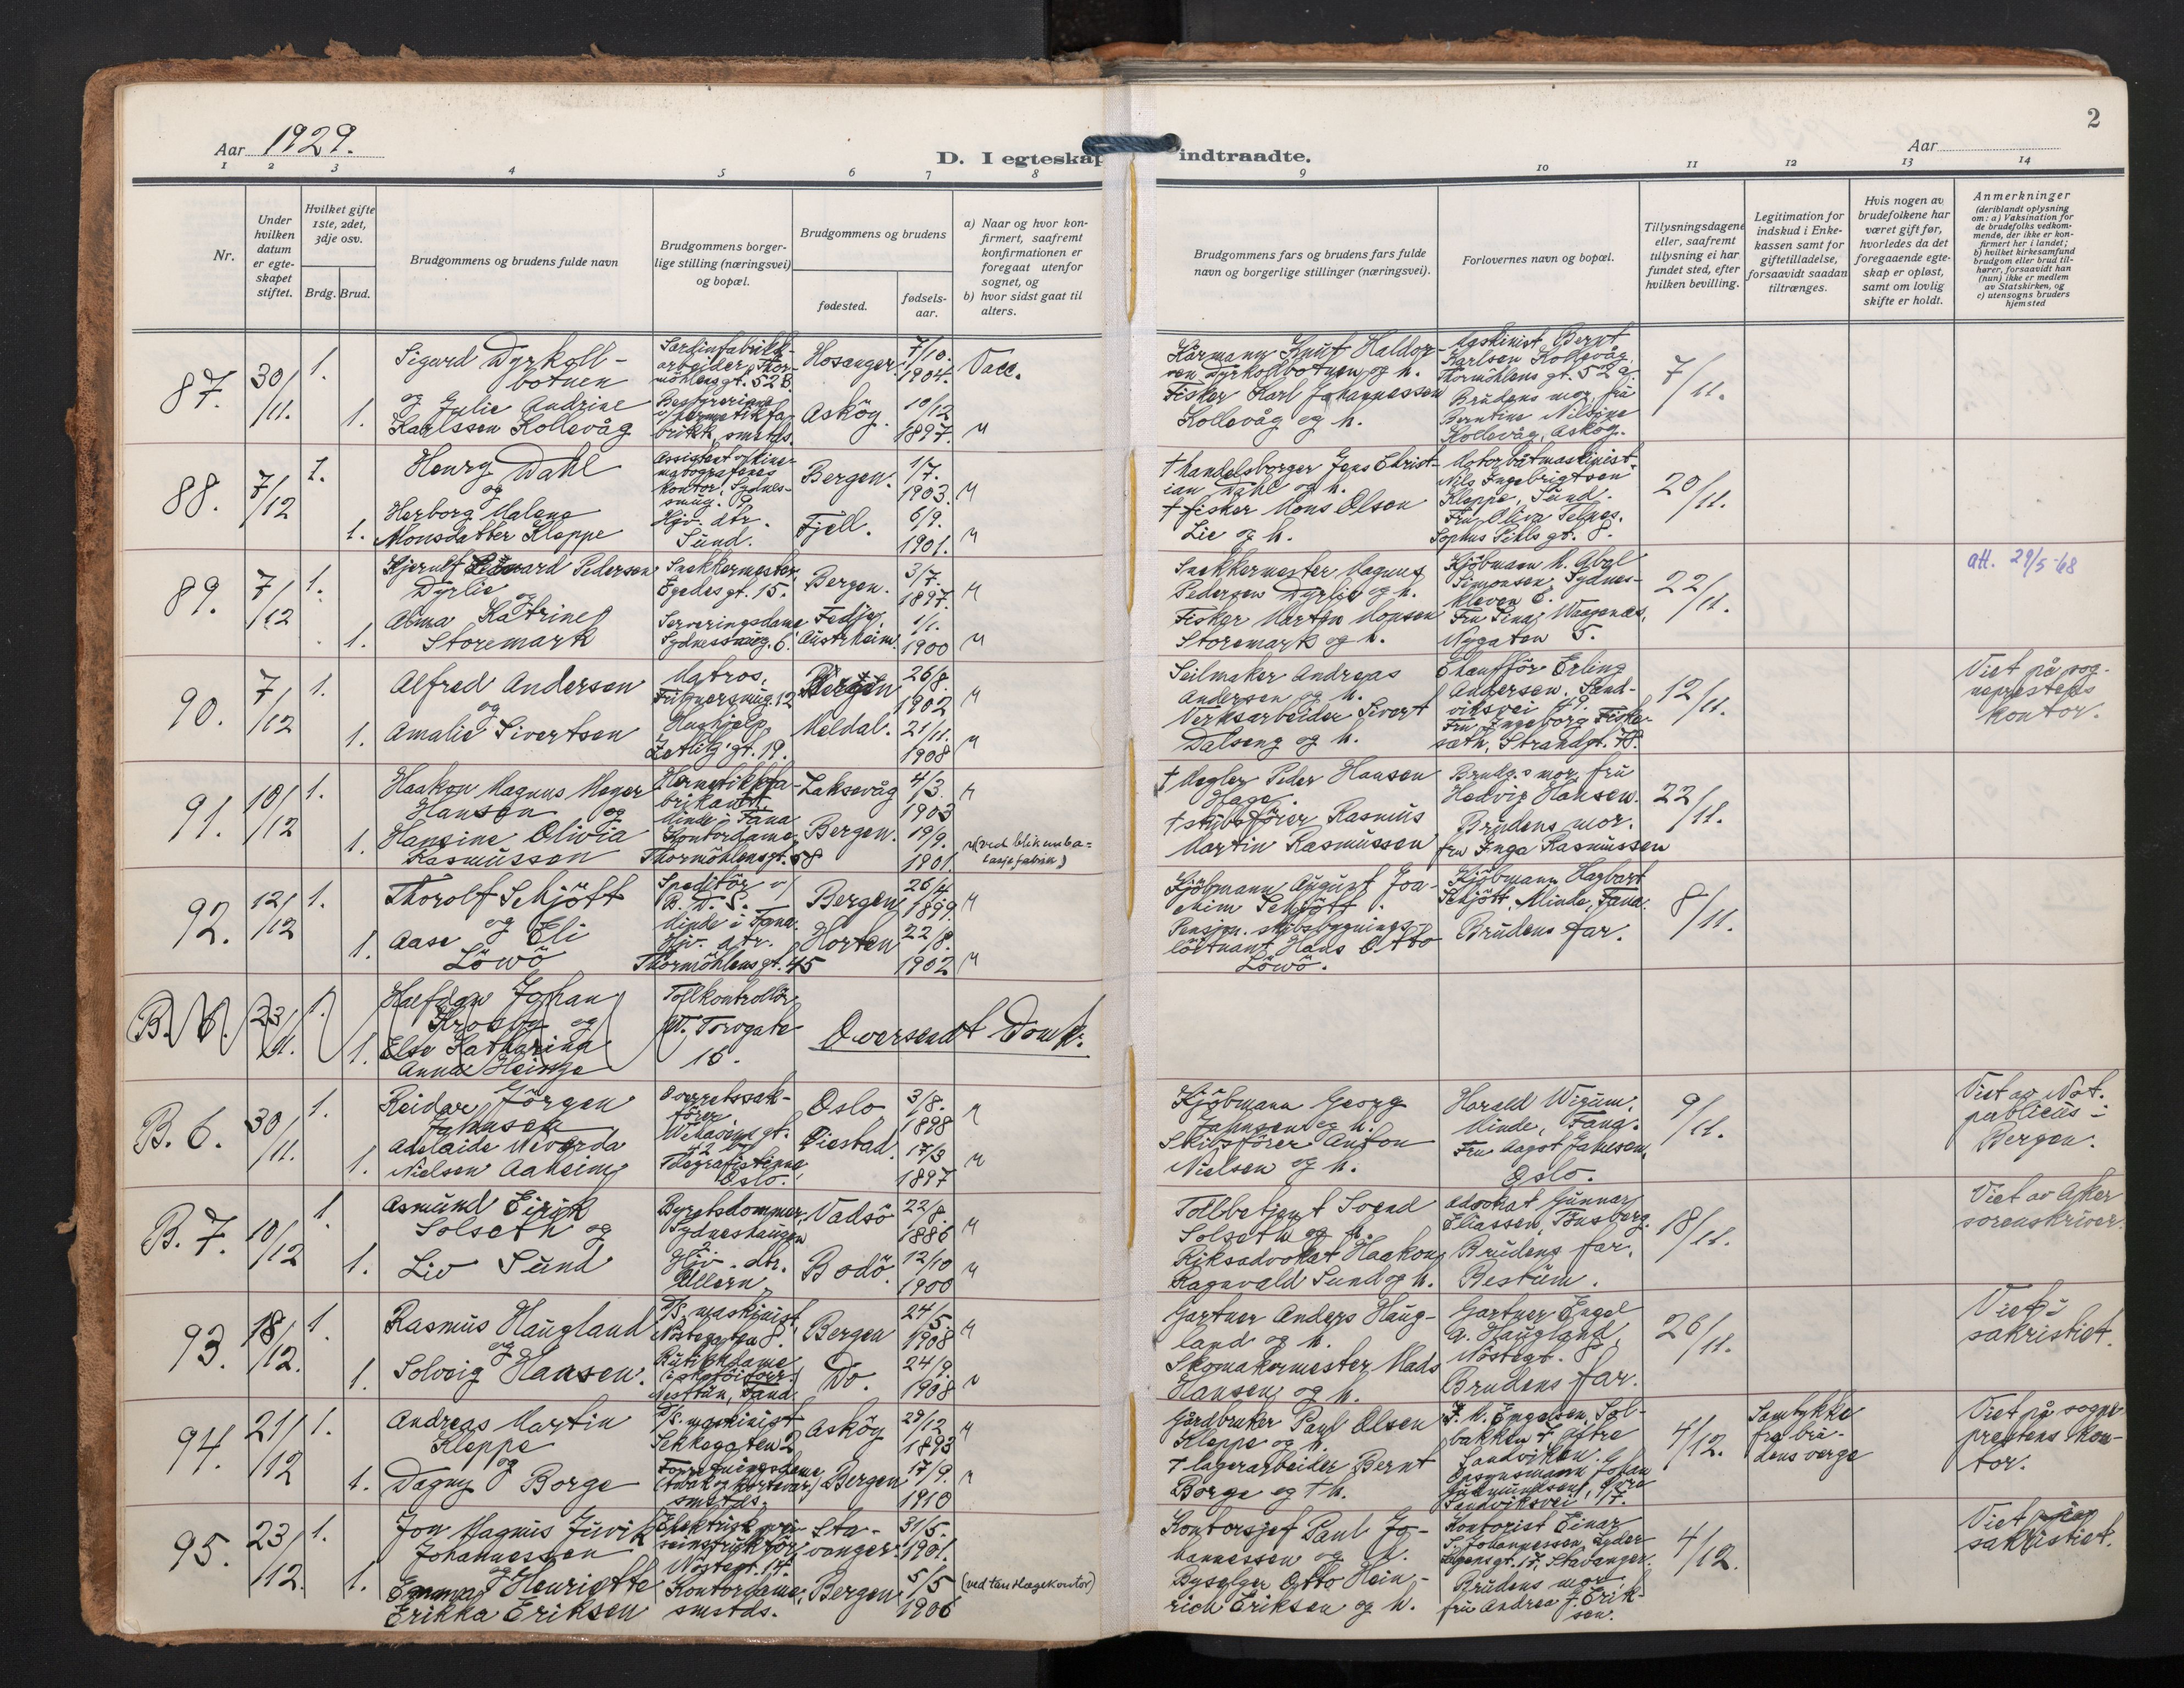 Aar 1929.
D. I egteskap
indtraadte.
Aar
2
1 2 3 4 5 6 7 8 9 10 11 12 13 14
Nr.
Under hvilken datum er egte-skapet stiftet.
Hvilket gifte 1ste, 2det, 3dje osv.
Brdg. Brud.
Brudgommens og brudens fulde navn
Brudgommens borger-lige stilling (næringsvei) og bopæl.
Brudgommens og brudens
fødested.
fødsels-aar.
a) Naar og hvor kon-firmert, saafremt konfirmationen er foregaat utenfor sognet, og
b) hvor sidst gaat til alters.
Brudgommens fars og brudens fars fulde navn og borgerlige stillinger (næringsvei).
Forlovernes navn og bopæl.
Tillysningsdagene eller, saafremt tillysning ei har fundet sted, efter hvilken bevilling.
Legitimation for indskud i Enke-kassen samt for giftetilladelse, forsaavidt saadan tiltrænges.
Hvis nogen av brudefolkene har været gift før, hvorledes da det foregaaende egte-skap er opløst, samt om lovlig skifte er holdt.
Anmerkninger
(deriblandt oplysning om: a) Vaksination for de brudefolks vedkom-mende, der ikke er kon-firmert her i landet; b) hvilket kirkesamfund brudgom eller brud til-hører, forsaavidt han (hun) ikke er medlem av Statskirken, og c) utensogns bruders hjemsted
87. 30/11. 1.
Sigurd Dyrkoll-
botnen
Sardinfabrikk-
arbeider, Thor-
möhlensgt. 52 B.
Hosanger. 7/10. 1904. Vacc.
og Julie Andrine
Karlssen Kollevåg
1.
Bestyrerinne
v/ hermetikkfa-
brikk, smstds.
Askög. 10/12 1897. "
Kårmann Knut Haldor-
sen Dyrkollbotnen og h.
Fisker Karl Johannessen
Kollevåg og h.
Maskinist Bernt
Karlsen Kollevåg.
Thormöhlens gt. 52 a.
Brudens mor, fru
Berntine Nilsine
Kollevåg, Askög.
7/11.
88. 7/12 1.
Henry Dahl
og
Herborg Malena
1. Monsdatter Kleppe
Assistent v/ kine-
matografenes
kontor, Sydnes-
smug. 9
Hjv. dtr.
Sund.
Bergen. 1/7. 1903. "
Fjell. 6/9. 1901. "
† Handelsborger Jens Christ-
ian Dahl og h.
† Fisker Mons Olsen
Lie og h.
Motorbåtmaskinist
Nils Ingebrigtsen
Kleppe, Sund.
Fru Oliva Telnes.
Sophus Pihls gt. 8.
20/11.
89. 7/12 1.
Hjerulf Edvard Pedersen
Dyrlie
og
Alma Katrine
1. Storemark
Snekkermester,
Egedesgt. 15.
Serveringsdame
Sydnessmug. 6.
Bergen. 3/7. 1897. "
Fedje,
Austrheim. 1/1. 1900 "
Snekkermester Magnus
Pedersen Dyrlie og h.
Fisker Martin Monsen
Storemark og h.
Kjöbmann M. Abel
Simonsen, Sydnes-
kleven 6.
Fru Tina Waagenæs,
Nygaten 5.
22/11.
att. 29/5-68
90. 7/12 1.
Alfred Andersen
og
1. Amalie Sivertsen
Matros,
Friknersmug. 12
Hushjelp
Zetlitz'gt. 19.
Bergen 26/8. 1902 "
Meldal. 21/11. 1908 "
Seilmaker Andreas
Andersen og h.
Verksarbeider Sivert
Dalseng og h.
Chaufför Erling
Andersen, Sand-
viksvei 49.
Fru Ingeborg Fiske-
sæth, Strandgt. 78.
12/11.
Viet på sog-
neprestens
kontor.
91. 10/12 1.
Haakon Magnus Meyer
Hansen og
1. Hansine Olivia
Rasmussen
Hermetikkfa-
brikant.
Minde i Fana
Kontordame,
Thormöhlensgt. 58
Laksevåg 4/3. 1903 "
Bergen. 19/9. 1901. " (ved blikemba-
lasjefabrik)
† Megler Peder Hansen
Hage.
† Skibsförer Rasmus
Martin Rasmussen
Brudg.s mor, fru
Hedvig Hansen.
Brudens mor.
fru Inga Rasmussen
22/11.
92. 12/12 1.
Thorolf Schjött
og
1. Aase Eli
Löwö
Speditör v/
B. D. S.
Minde i Fana.
Hjv. dtr.
Thormöhlensgt. 45
Bergen 26/4 1899. "
Horten 22/8. 1902 "
Kjöbmann August Joa-
chim Schjött.
Pensjon. skibsbygnings-
löitnant Hans Otto
Löwö.
Kjöbmann Hagbart
Schjött, Minde, Fana.
Brudens far.
8/11.
B. 6. 23/11. 1.
Halfdan Johan
Krosby og
1. Else Katharina
Anna Heinze
Tollkontrollör
Torvgate
15.
Oversendt Domk.
B. 6. 30/11. 1.
Reidar Jörgen
Jahnsen
Adelaide Neverda
1. Nielsen Aaheim
Overretssak-
förer
Telegrafistinne,
Oslo.
Oslo 3/8. 1898 "
Tiestad. 17/3 1897 "
Kjöbmann Georg
Jahnsen og h.
Skibsförer Anton
Nielsen og h.
Harald Wigum,
Minde, Fana.
Fru Aagot Jahnsen,
Oslo.
9/11.
Viet av Not.
publicus i
Bergen.
B. 7. 10/12 1.
Asmund Eirik
Solseth og
1. Liv Sund
Byretsdommer,
Sydneshaugen
2
Hjv. dtr.
Ullern.
Vadsö 22/8. 1886 "
Bodö. 12/10 1900 "
Tollbetjent Svend
Solseth og h.
Riksadvokat Haakon
Ragnvald Sund og h.
Advokat Gunnar
Eliassen, Tönsberg.
Brudens far.
Bestum.
18/11.
Viet av Aker
sorenskriver.
93. 18/12. 1.
Rasmus Haugland
og
1. Solveig Hansen.
D/S. maskinist
Nöstegaten 8.
Butikkdame
i skotöiforr.
Nesttun, Fana.
Bergen 24/5. 1908 "
Do. 24/9. 1908 "
Gartner Anders Haug-
land og h.
Skomakermester Mads
Hansen og h.
Gartner Engel
A. Haugland,
Nöstegt. 8.
Brudens far.
26/11.
Viet i
sakristiet.
94. 21/12 1.
Andreas Martin
Kleppe
og
1. Dagny Borge
D/S. maskinist
Sekkegaten 2
Forretningsdame
smstds.
Askög 29/12 1893 "
Bergen 17/9. 1910 "
Gårdbruker Paul Olsen
Kleppe og h.
† lagerarbeider Bernt
Borge og † h.
J. M. Engelsen, Sol-
bakken, Ytre
Sandviken.
Opsynsmann Johan
Gudmundsen, Övre
Sandviksvei 17.
4/12.
Samtykke
fra bru-
dens verge
Viet på sogne
prestens kon-
tor.
95. 23/12. 1.
Jon Magnus Juvik
Johannessen
og
1. Emmy Henriette
Erikka Eriksen
Nöstegt. 14.
Kontordame,
smstds.
Sta-
vanger. 31/5. 1901.
Bergen 5/5 1906
(ved tannlægekontor)
Kontorsjef Paul Jo-
hannessen og h.
Byselger Otto Hein-
rich Eriksen og h.
Kontorist Einar
S. Johannessen, Lyder
Sagensgt. 17, Stavanger.
Brudens mor
fru Andrea J. Erik-
sen.
4/12.
Viet i
sakristiet.